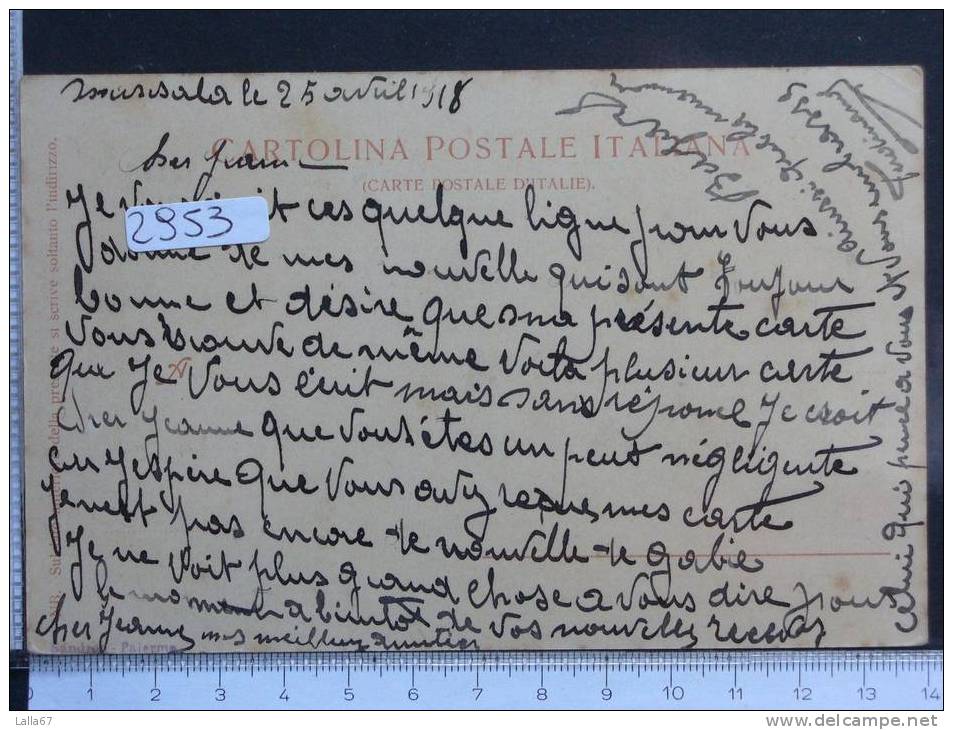 marsala le 25 avril 1918
CARTOLINA POSTALE ITALIANA
(CARTE POSTALE D'ITALIE).
cher Jeanne
2953
Je vous it ces quelque ligne pour vous
donne de mes nouvelle qui sont toujour
bonne et désire que ma présente carte
vous trouve de même voila plusieur carte
que Je vous écrit mais sans réponse Je croit
cher Jeanne que vous êtes un peut négligente
car J'espère que vous avez reçue mes carte
Je n'est pas encore de nouvelle de gabie
Je ne voit plus grand chose a vous dire pour
le moment a bientot de vos nouvelle recevez
cher Jeanne mes meilleur amitier
celui qui pense a vous
Su della pre te si scrive soltanto l'indirizzo.
Palermo
0 1 2 3 4 5 6 7 8 9 10 11 12 13 14
Lalla67
www.delcampe.net